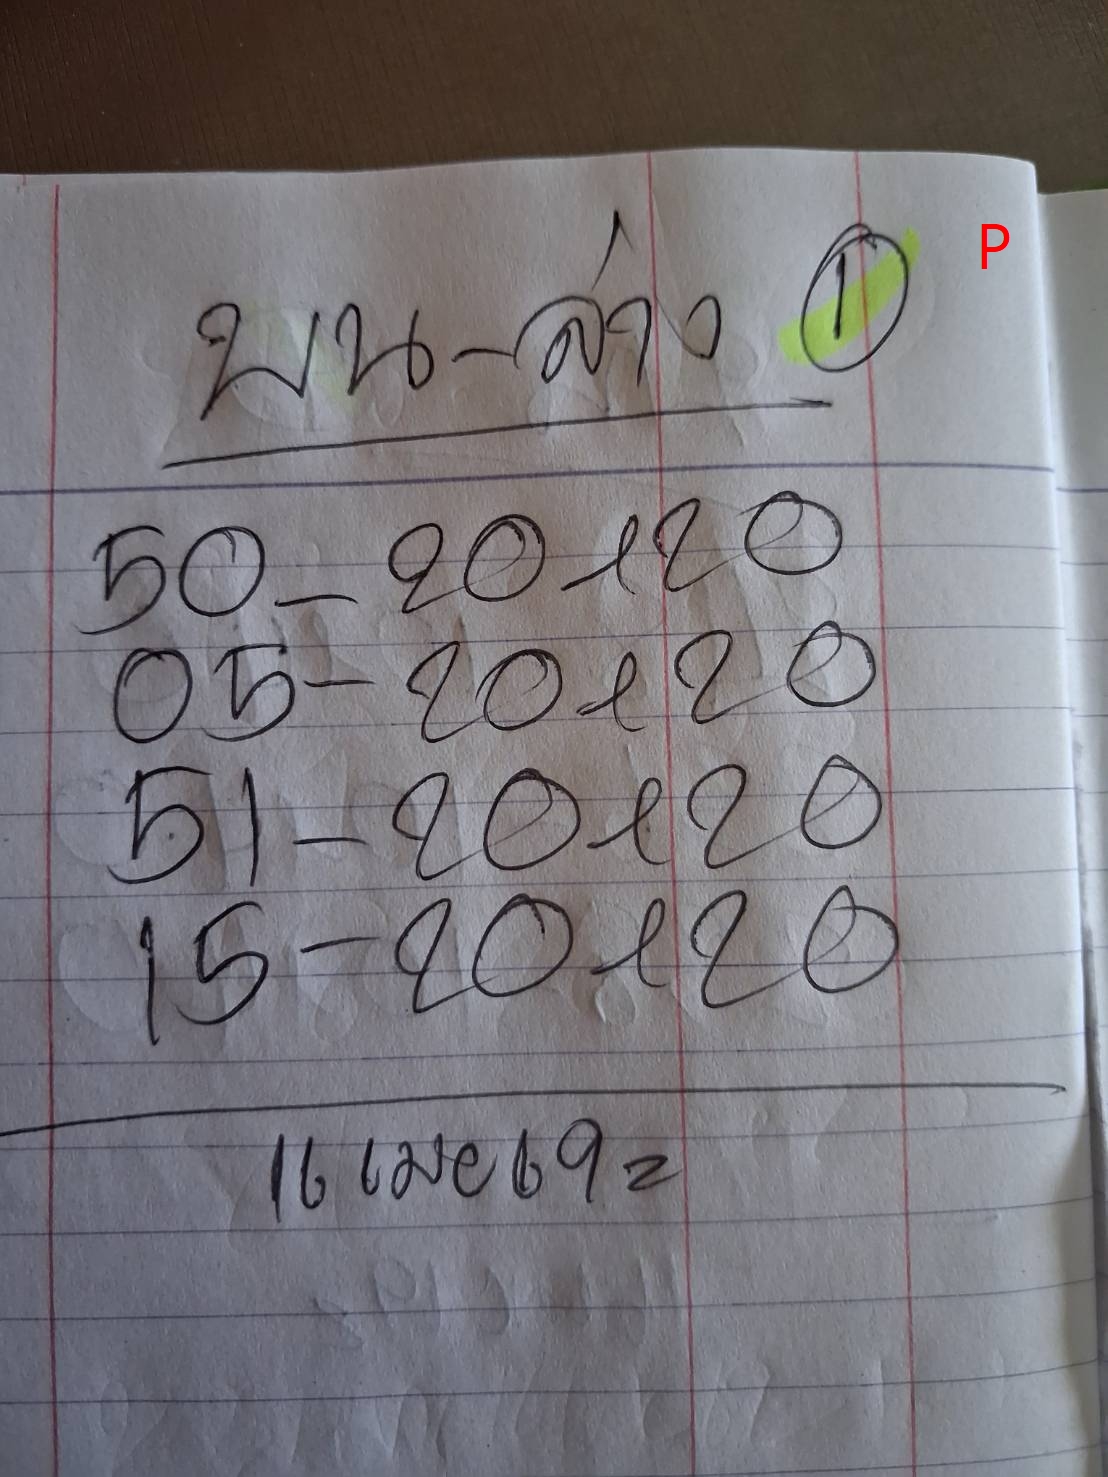 บน-ล่าง ① P
50-20x20
05-20x20
51-20x20
15-20x20
16 เมย 69 =